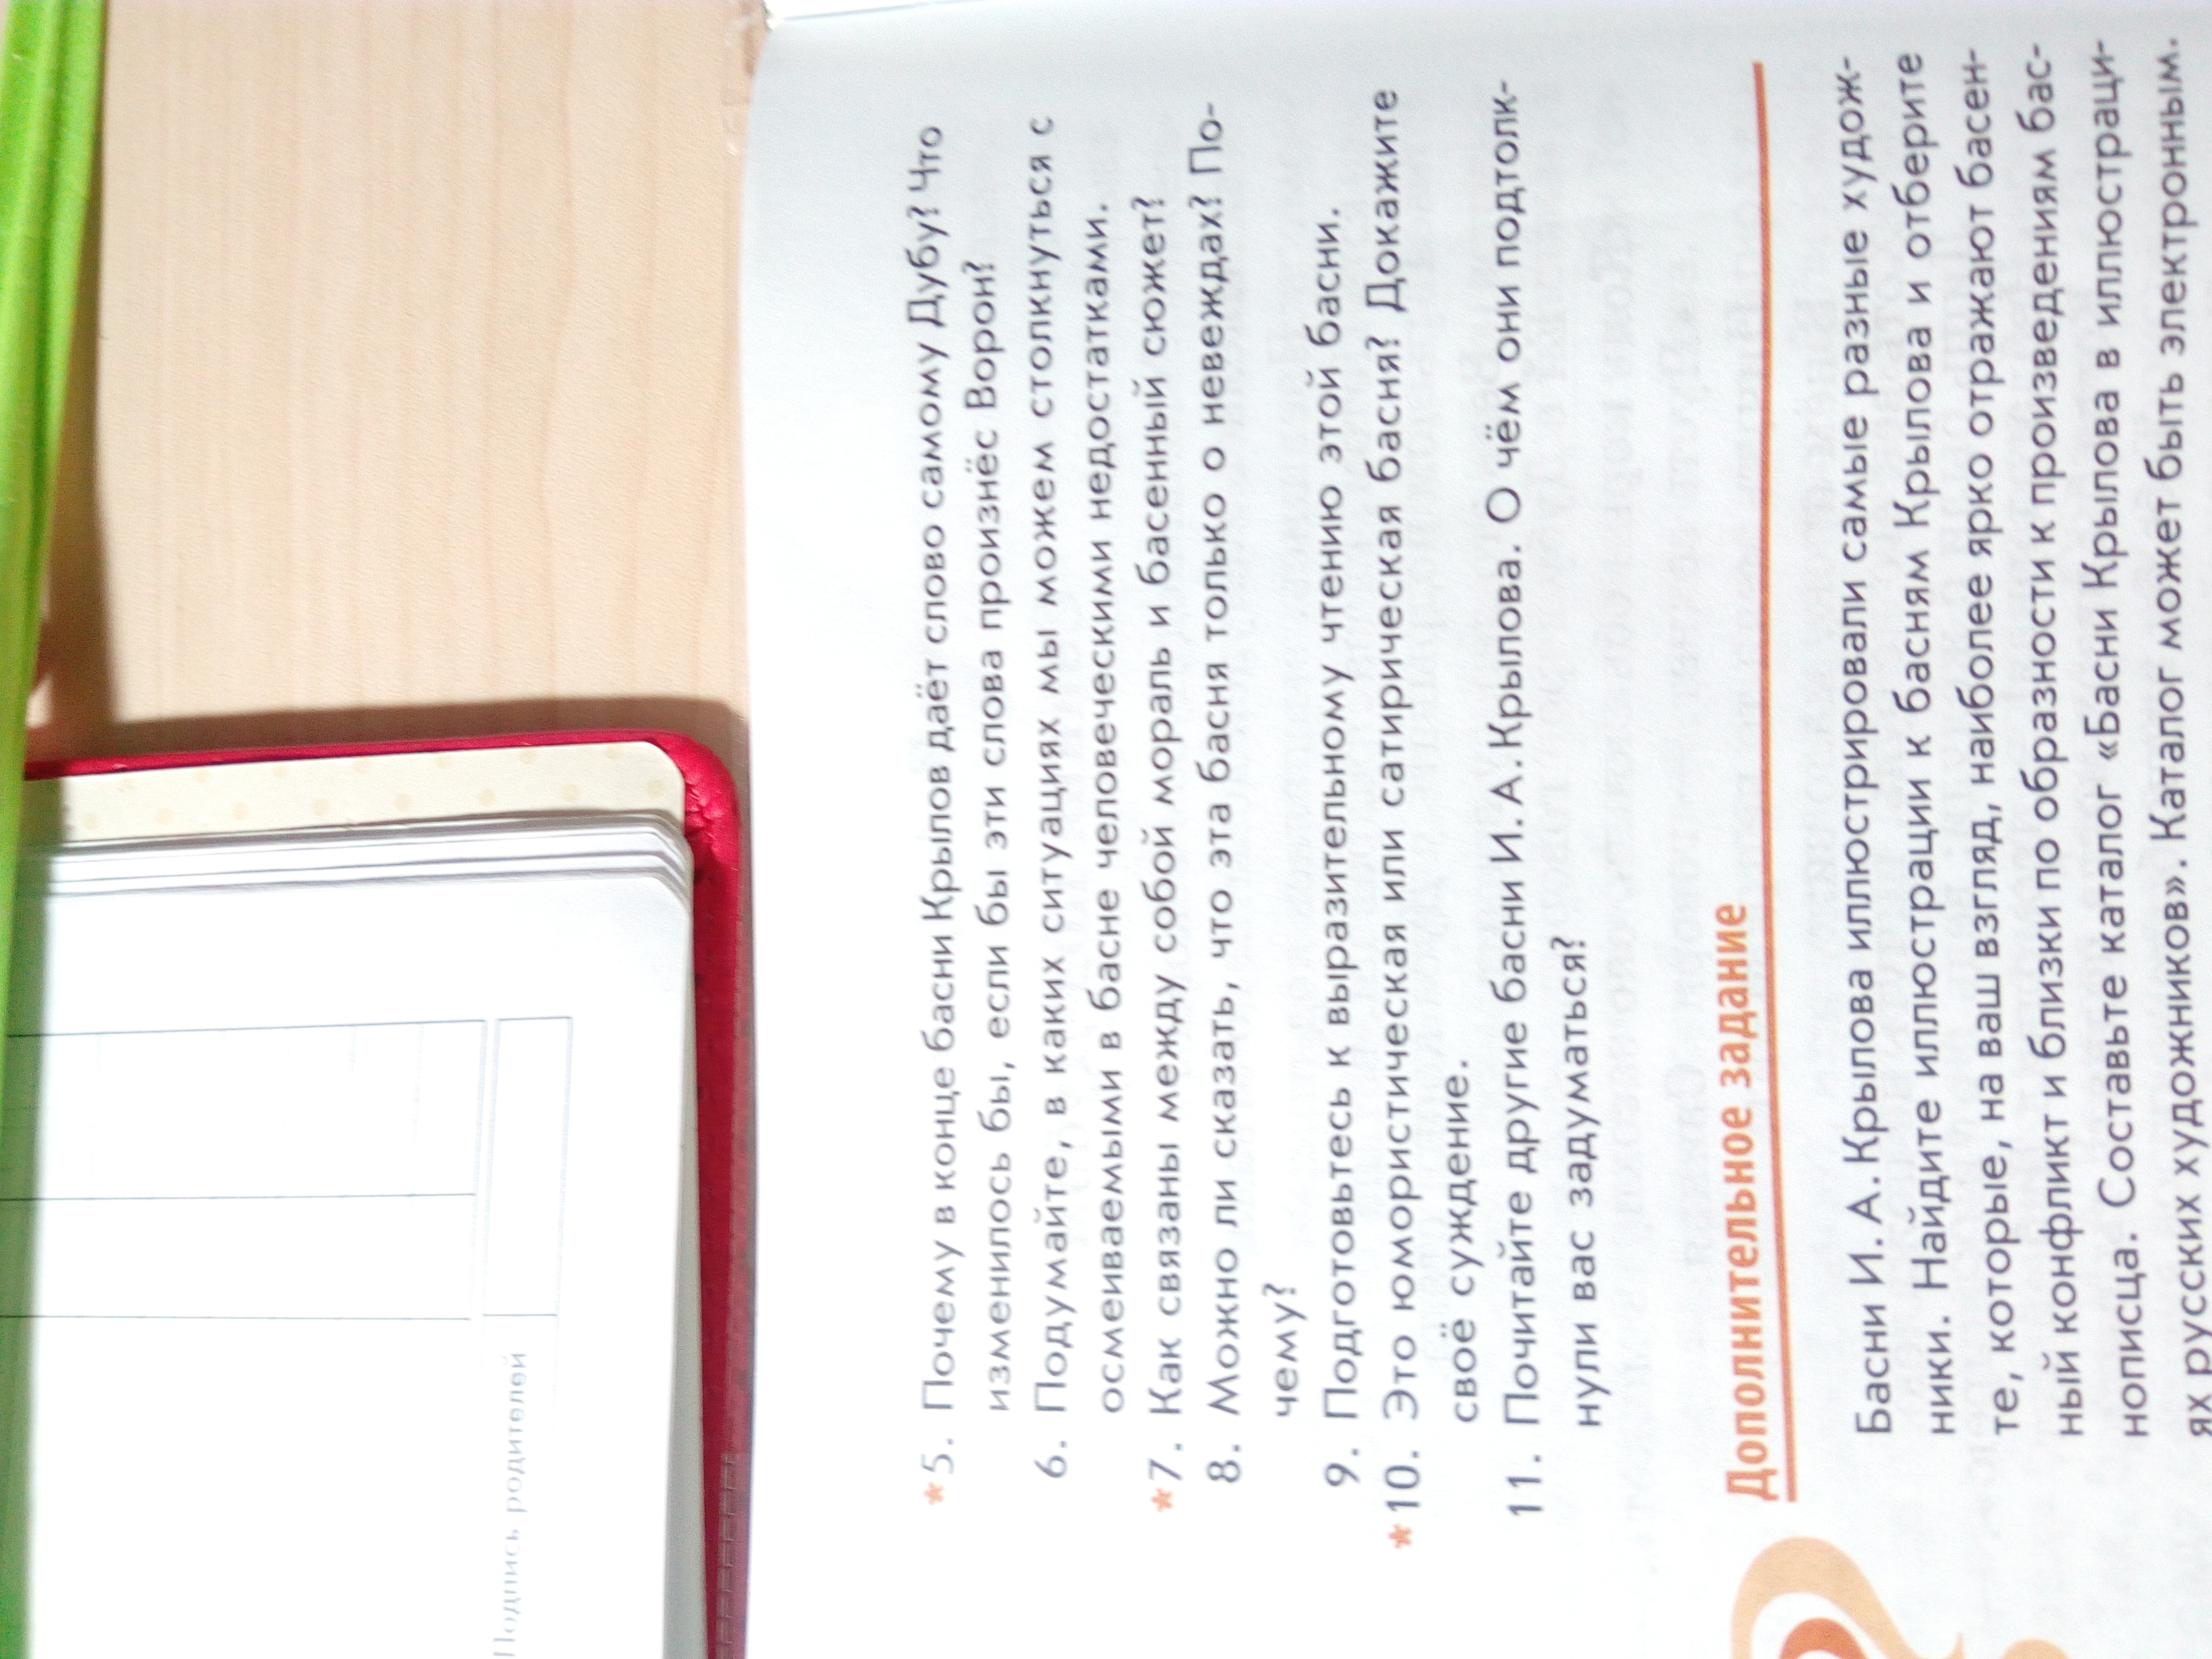 Подпись родителей
*5. Почему в конце басни Крылов даёт слово самому Дубу? Что
изменилось бы, если бы эти слова произнёс Ворон?
6. Подумайте, в каких ситуациях мы можем столкнуться с
осмеиваемыми в басне человеческими недостатками.
*7. Как связаны между собой мораль и басенный сюжет?
8. Можно ли сказать, что эта басня только о невеждах? По-
чему?
9. Подготовьтесь к выразительному чтению этой басни.
*10. Это юмористическая или сатирическая басня? Докажите
своё суждение.
11. Почитайте другие басни И. А. Крылова. О чём они подтолк-
нули вас задуматься?
Дополнительное задание
Басни И. А. Крылова иллюстрировали самые разные худож-
ники. Найдите иллюстрации к басням Крылова и отберите
те, которые, на ваш взгляд, наиболее ярко отражают басен-
ный конфликт и близки по образности к произведениям бас-
нописца. Составьте каталог «Басни Крылова в иллюстраци-
ях русских художников». Каталог может быть электронным.